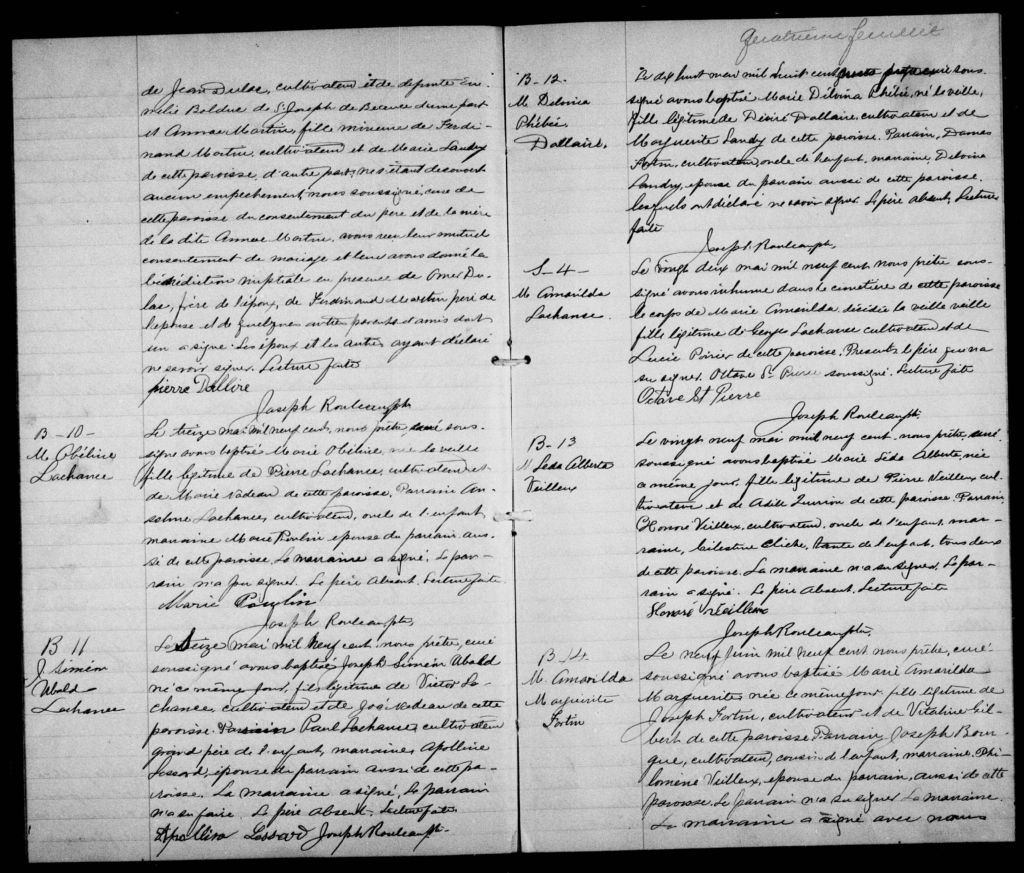 de Jean Dulac, cultivateur et de defunte En-
melie Bolduc de St Joseph de Beauce d'une part
et Annae Martin, fille mineure de Ferdi-
nand Martin, cultivateur et de Marie Landry
de cette paroisse, d'autre part; ne s'étant découvert
aucun empechement, nous soussigné, curé de
cette paroisse du consentement du père et de la mère
de la dite Annae Martin, avons reçu leur mutuel
consentement de mariage et leur avons donné la
bénédiction nuptiale en presence de Omer Du-
lac, frère de l'époux, de Ferdinand Martin père de
l'epouse et de quelques autres parents et amis dont
un a signé. Les époux et les autres ayant déclaré
ne savoir signer. Lecture faite
pierre Dallire
Joseph Rouleau ptr
B-10-
M. Obéline
Lachance
Le treize mai mil neuf cent, nous prêtre, curé sous-
signé avons baptisé Marie Obéline, née la veille
fille légitime de Pierre Lachance, cultivateur et
de Marie Nadeau de cette paroisse. Parrain An-
selme Lachance, cultivateur, oncle de l'enfant,
marraine Marie Poulin epouse du parrain aus-
si de cette paroisse. La marraine a signé. Le par-
rain n'a pu signer. Le père absent. Lecture faite
Marie Poulin
Joseph Rouleau ptr.
B 11
J. Siméon
Ubald
Lachance
Le Seize mai mil neuf cent, nous prêtre, curé
soussigné avons baptisé Joseph Siméon Ubald
né ce même jour, fils légitime de Victor La-
chance, cultivateur et de Jos. Nadeau de cette
paroisse. Parrain Paul Lachance, cultivateur
grand père de l'enfant, marraine, Apolline
Lessard, épouse du parrain aussi de cette pa-
roisse. La marraine a signé, Le parrain
n'a su faire. Le père Absent, Lecture faite
Apollina Lessard Joseph Rouleau ptr.
Quatrième feuillet
B-12-
M. Delvina
Phébée.
Dallaire.
Le dix huit mai mil huit cent nous prêtre curé sous-
signé avons baptisé Marie Délvina Phébée, né la veille,
fille légitime de Désiré Dallaire, cultivateur et de
Marguerite Landry de cette paroisse. Parrain, Damas
Fortin, cultivateur, oncle de l'enfant, marraine, Delvina
Landry, epouse du parrain aussi de cette paroisse.
lesquels ont déclaré ne savoir signer. Le père absent, Lecture
faite
Joseph Rouleau ptr.
S-4-
M Amarilda
Lachance.
Le vingt deux mai mil neuf cent, nous prêtre sous-
signé avons inhumé dans le cimetière de cette paroisse
le corps de Marie Amarilda, décédée la veille veille
fille légitime de George Lachance cultivateur et de
Lucie Poirier de cette paroisse. Presents le père qui n'a
su signer. Octave St Pierre soussigné. Lecture faite
Octave St Pierre
Joseph Rouleau ptr.
B-13
M Léda Alberta
Veilleux
Le vingt neuf mai mil neuf cent, nous prêtre, curé
soussigné avons baptisé Marie Léda Alberta, née
ce même jour, fille légitime de Pierre Veilleux cul-
tivateur et de Adèle Turrin de cette paroisse. Parrain
Honoré Veilleux, cultivateur, oncle de l'enfant, mar-
raine, Célestine Cliche, tante de l'enfant, tous deux
de cette paroisse. La marraine n'a su signer. Le par-
rain a signé. Le père Absent, Lecture faite
Honoré Veilleux
Joseph Rouleau ptr.
B-14
M. Amarilda
Marguerite
Fortin
Le neuf Juin mil neuf cent nous prêtre, curé
soussigné avons baptisé Marie Amarilda
Marguerite née ce même jour fille légitime de
Joseph Fortin, cultivateur et de Vitaline Gil-
bert de cette paroisse. Parrain, Joseph Bour-
que, cultivateur, cousin de l'enfant, marraine, Phi-
lomène Veilleux, epouse du parrain, aussi de cette
paroisse. Le parrain n'a su signer La marraine.
La marraine a signé avec nous